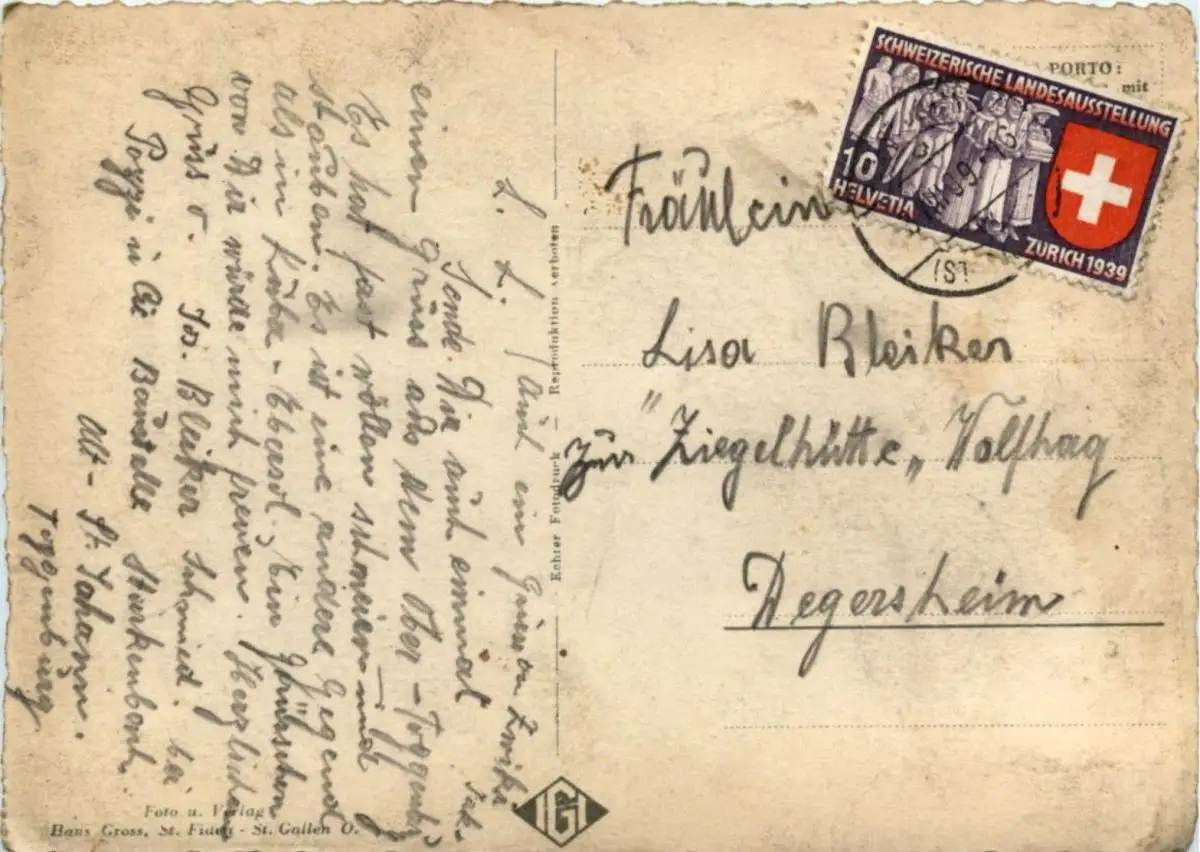 L. L. (Auch ein Gruss an
Sende Dir auch einmal
einen Gruss aus dem Ober-Toggenbg.
Es hat fast wöllen schneien und
stauben. Es ist eine andere Gegend
als im Ebersol. Ein
von Dir würde mich freuen. Herzlichen
Gruss v. Jos. Bleiker Schmied. bei
Pozzi u. Cie Baustelle Starkenbach.
Alt-St. Johann.
Toggenburg
Foto u. Verlag
Hans Gross, St. Fiden - St. Gallen O.
Echter Fotodruck - Reproduktion verboten
IGI
PORTO:
mit
SCHWEIZERISCHE LANDESAUSSTELLUNG
10
HELVETIA
ZÜRICH 1939
Fräulein
Lisa Bleiker
zur "Ziegelhütte" Wolfhag
Degersheim